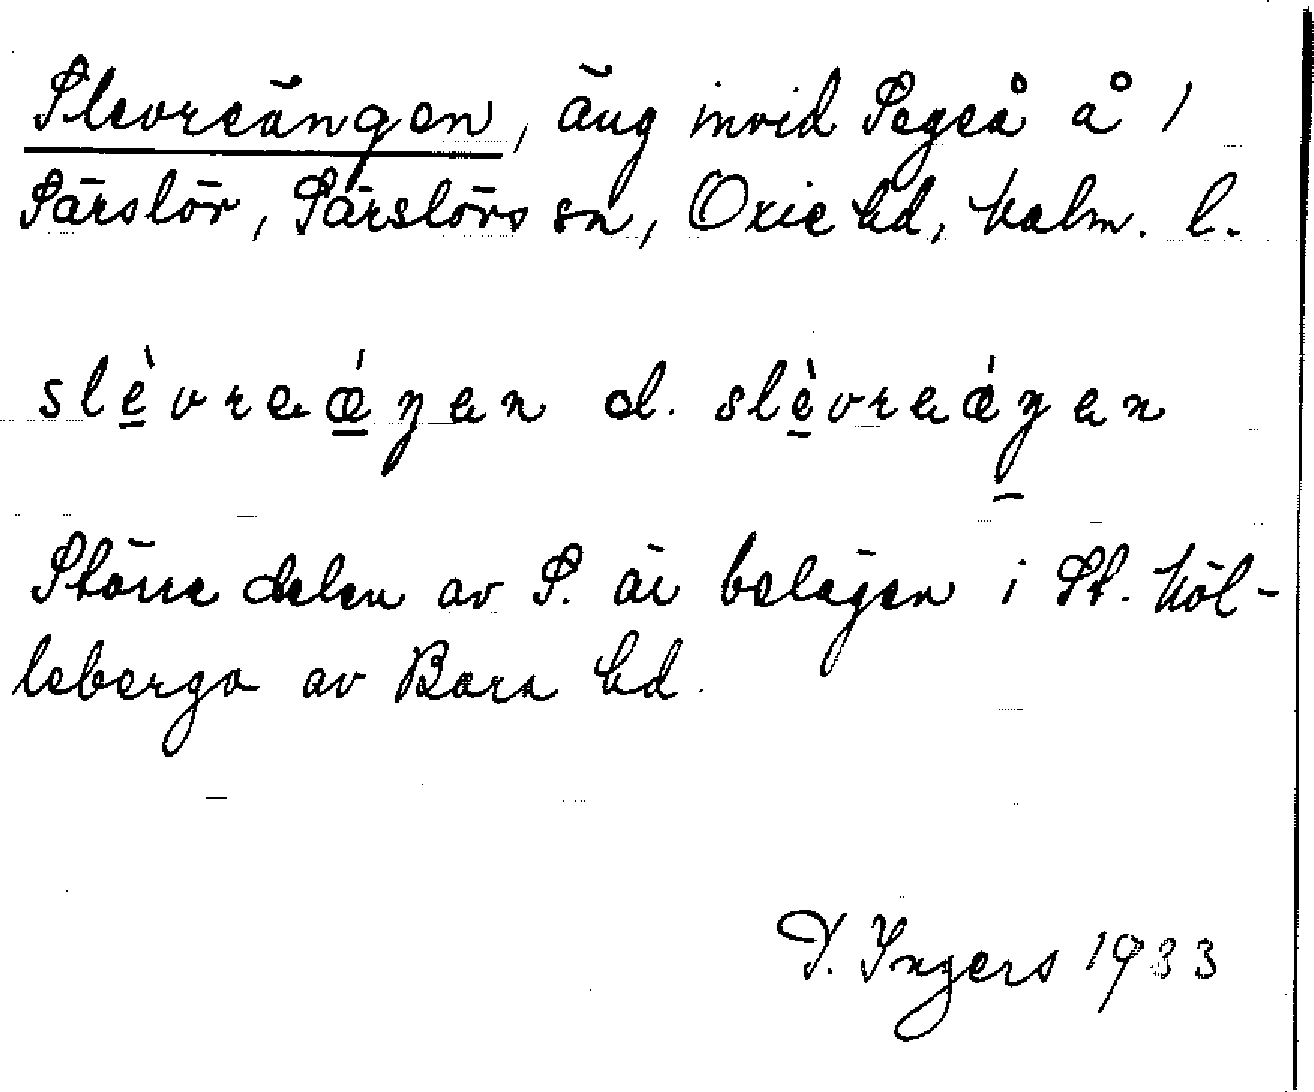 Slevreängen, äng invid Segeå å 1
Särslöv, Särslövs sn, Oxie hd, Malm. l.
slèvreǽŋen el. slèvreǽŋen
Större delen av S. är belägen i St. Möl-
leberga av Bara hd.
I. Ingers 1933